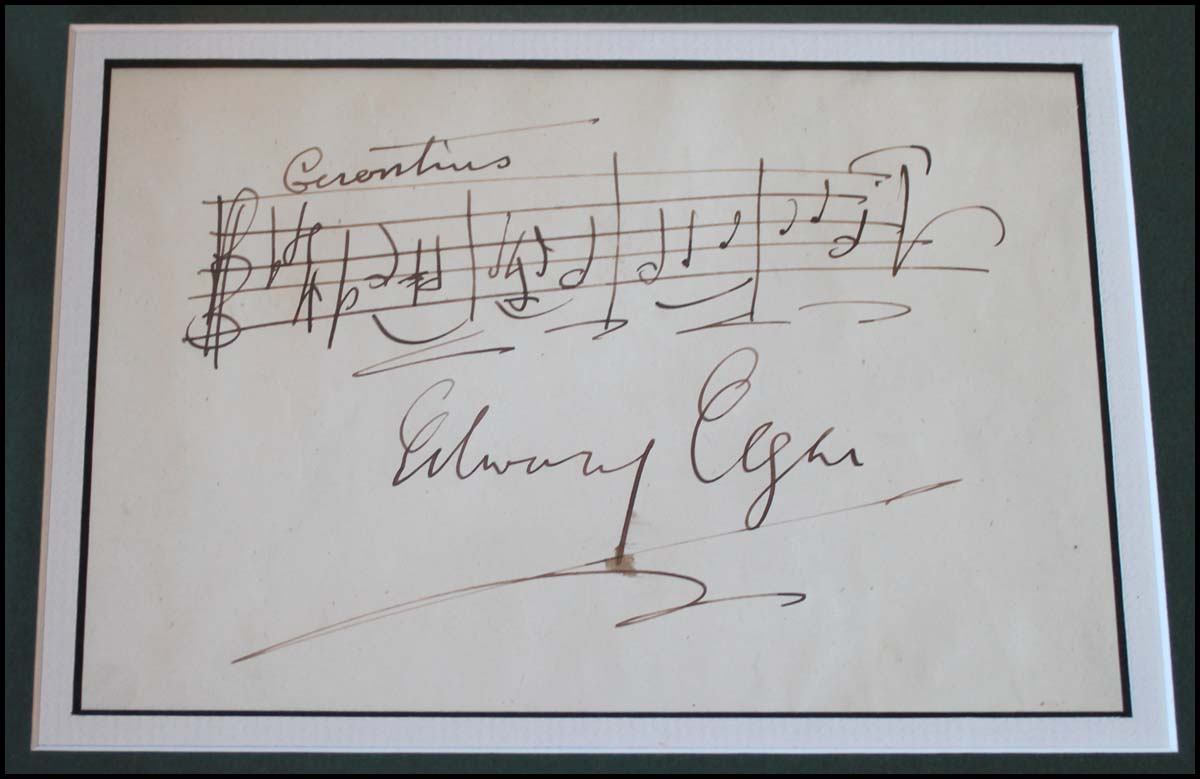 Gerontius
Edward Elgar